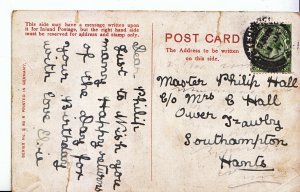 This side may have a message written upon it for Inland Postage, but the right hand side must be reserved for address and stamp only.
POST CARD
The Address to be written on this side.
Dear Philip
Just to Wish you
many Happy returns
of the day for
your Birthday
with love
Master Philip Hall
C/o Mrs C Hall
Ower
Southampton
Hants
PRINTED IN GERMANY.